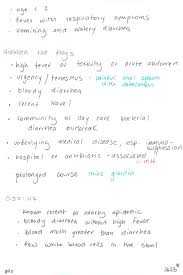 • age < 2
• fever with respiratory symptoms
• vomiting and watery diarrhea
diarrhea red flags
• high fever or toxicity or acute abdomen
• urgency / tenesmus - painful anal spasm with defecation
• bloody diarrhea
• recent travel
• community or day care bacterial diarrhea outbreak
• underlying medical disease, esp. immunosuppression
• hospital or antibiotic-associated
prolonged course think giardia
• known recent or nearby epidemic
• bloody diarrhea without high fever
• blood much greater than diarrhea
• few white blood cells in the stool